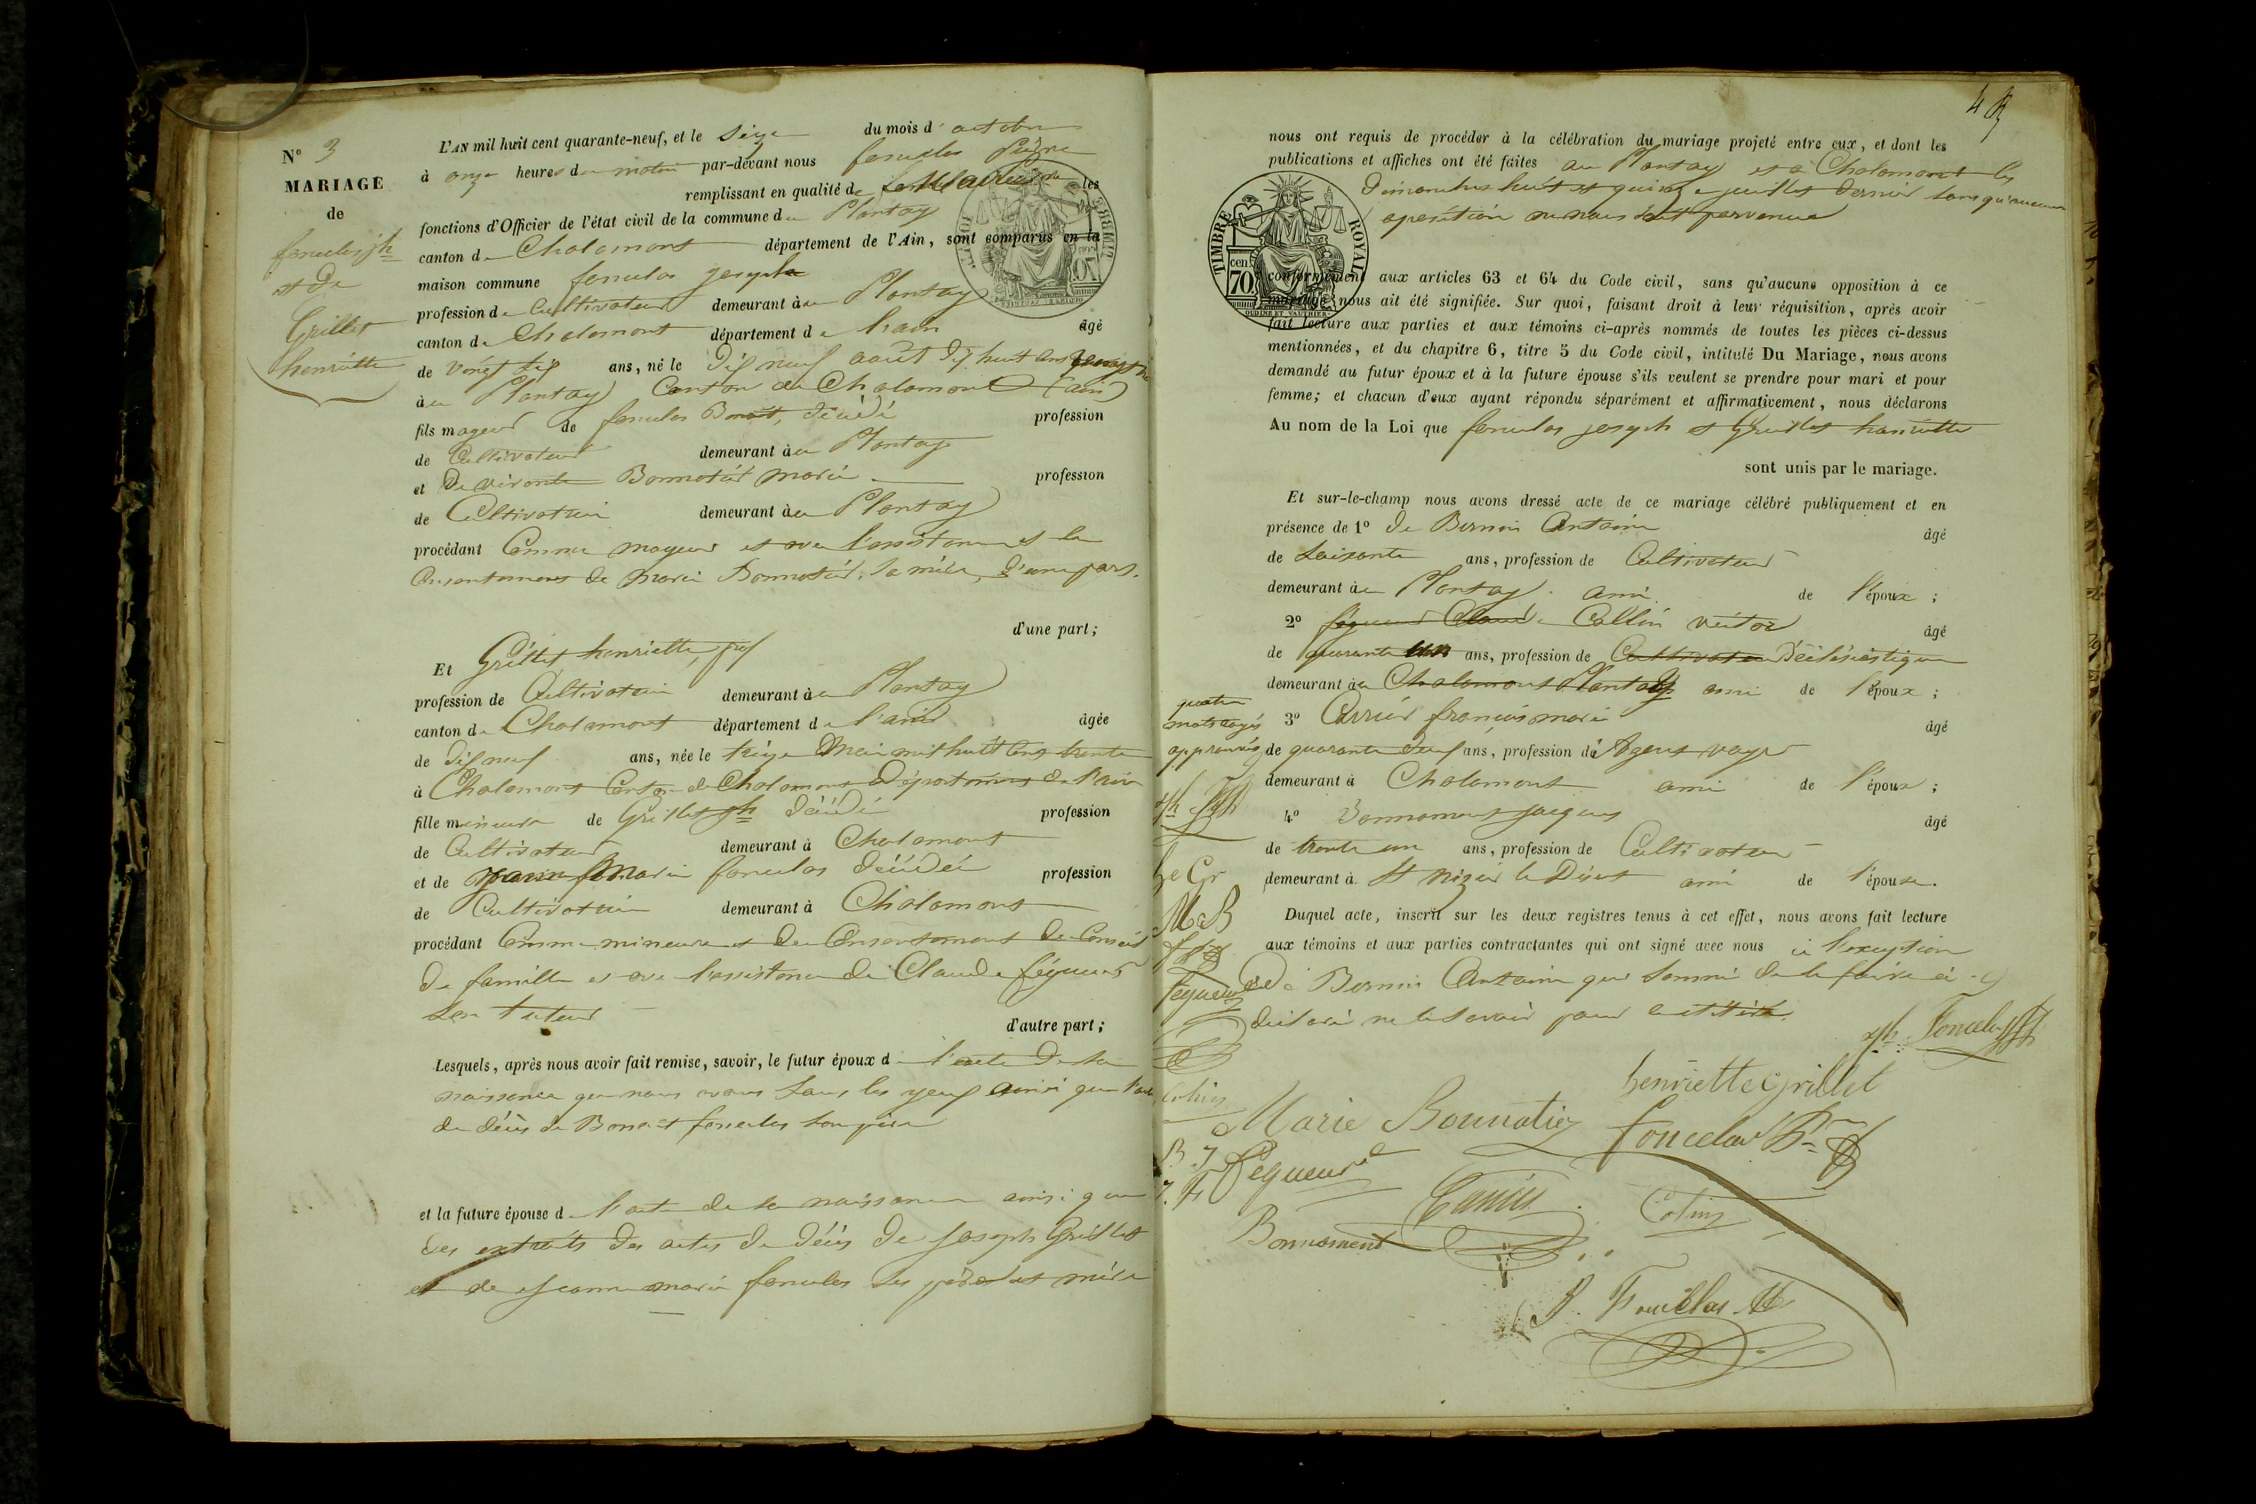 N° 3
MARIAGE
de
foncelas jh
et de
Grillet
henriette
L'AN mil huit cent quarante-neuf, et le seize du mois d'octobre
à onze heures du matin par-devant nous foncelas Pierre
remplissant en qualité de Maire les
fonctions d'Officier de l'état civil de la commune du Plantay
canton de Chalamont département de l'Ain, sont comparus en la
maison commune foncelas joseph
profession de Cultivateur demeurant au Plantay
canton de Chalamont département de l'ain âgé
de ans, né le dix neuf août dix huit cent
à au Plantay Canton de Chalamont (ain)
fils mageur de foncelas Benoit, décédé profession
de Cultivateur demeurant à au Plantay
et de vivante Bonnatié marie profession
de Cultivatrice demeurant à au Plantay
procédant Comme mageur et avec l'assistance et le
Consentement de marie Bonnatié, sa mère, d'une part.
d'une part;
Et Grillet henriette
profession de Cultivatrice demeurant à au Plantay
canton de Chalamont département de l'ain âgée
de dix neuf ans, née le treize Mai mil huit cent trente
à Chalamont Canton de Chalamont Département de l'ain
fille mineure de Grillet jh décédé profession
de Cultivateur demeurant à Chalamont
et de marie foncelas décédée profession
de Cultivatrice demeurant à Chalamont
procédant Comme mineure et du Consentement du Conseil
de famille et avec l'assistance de Claude féqueur
son tuteur
d'autre part;
Lesquels, après nous avoir fait remise, savoir, le futur époux de l'acte de sa
naissance que nous avons sous les yeux ainsi que l'acte
de décès de Benoit foncelas son père
et la future épouse de l'acte de sa naissance ainsi que
des extraits des actes de décès de Joseph Grillet
et de Jeanne marie foncelas ses père et mère
nous ont requis de procéder à la célébration du mariage projeté entre eux, et dont les
publications et affiches ont été faites au Plantay et à Chalamont les
dimanches huit et quinze juillet dernier sans qu'aucune
oposition ne nous soit parvenue
TIMBRE ROYAL
70 cen
OUDINE ET VAUTHIER
conformément aux articles 63 et 64 du Code civil, sans qu'aucune opposition à ce
mariage nous ait été signifiée. Sur quoi, faisant droit à leur réquisition, après avoir
fait lecture aux parties et aux témoins ci-après nommés de toutes les pièces ci-dessus
mentionnées, et du chapitre 6, titre 5 du Code civil, intitulé Du Mariage, nous avons
demandé au futur époux et à la future épouse s'ils veulent se prendre pour mari et pour
femme; et chacun d'eux ayant répondu séparément et affirmativement, nous déclarons
Au nom de la Loi que foncelas joseph et Grillet henriette
sont unis par le mariage.
Et sur-le-champ nous avons dressé acte de ce mariage célébré publiquement et en
présence de 1° de Bernin Antoine âgé
de soixante ans, profession de Cultivateur
demeurant à au Plantay ami de l'époux;
2° féqueur Claude Collin victor âgé
de quarante un ans, profession de Cultivateur Déclésiastique
demeurant à au Chalamont Plantay ami de l'époux;
3° Carrier françois marie âgé
de quarante deux ans, profession de Agent voyer
demeurant à Chalamont ami de l'époux;
4° Bonnamant jacques âgé
de trente un ans, profession de Cultivateur
demeurant à St Nizier le Désert ami de l'épouse.
Duquel acte, inscrit sur les deux registres tenus à cet effet, nous avons fait lecture
aux témoins et aux parties contractantes qui ont signé avec nous à l'exception
de Bernin Antoine qui sommé de le faire a
déclaré ne le savoir
quatre
mots rayés
approuvés
he Gr
M B
féqueur
Colin
B J
jh foncelas
henriette Grillet
Marie Bonnatiez
foncelas
fequeur
Carrier
Colin
Bonnamant
P. Foncelas